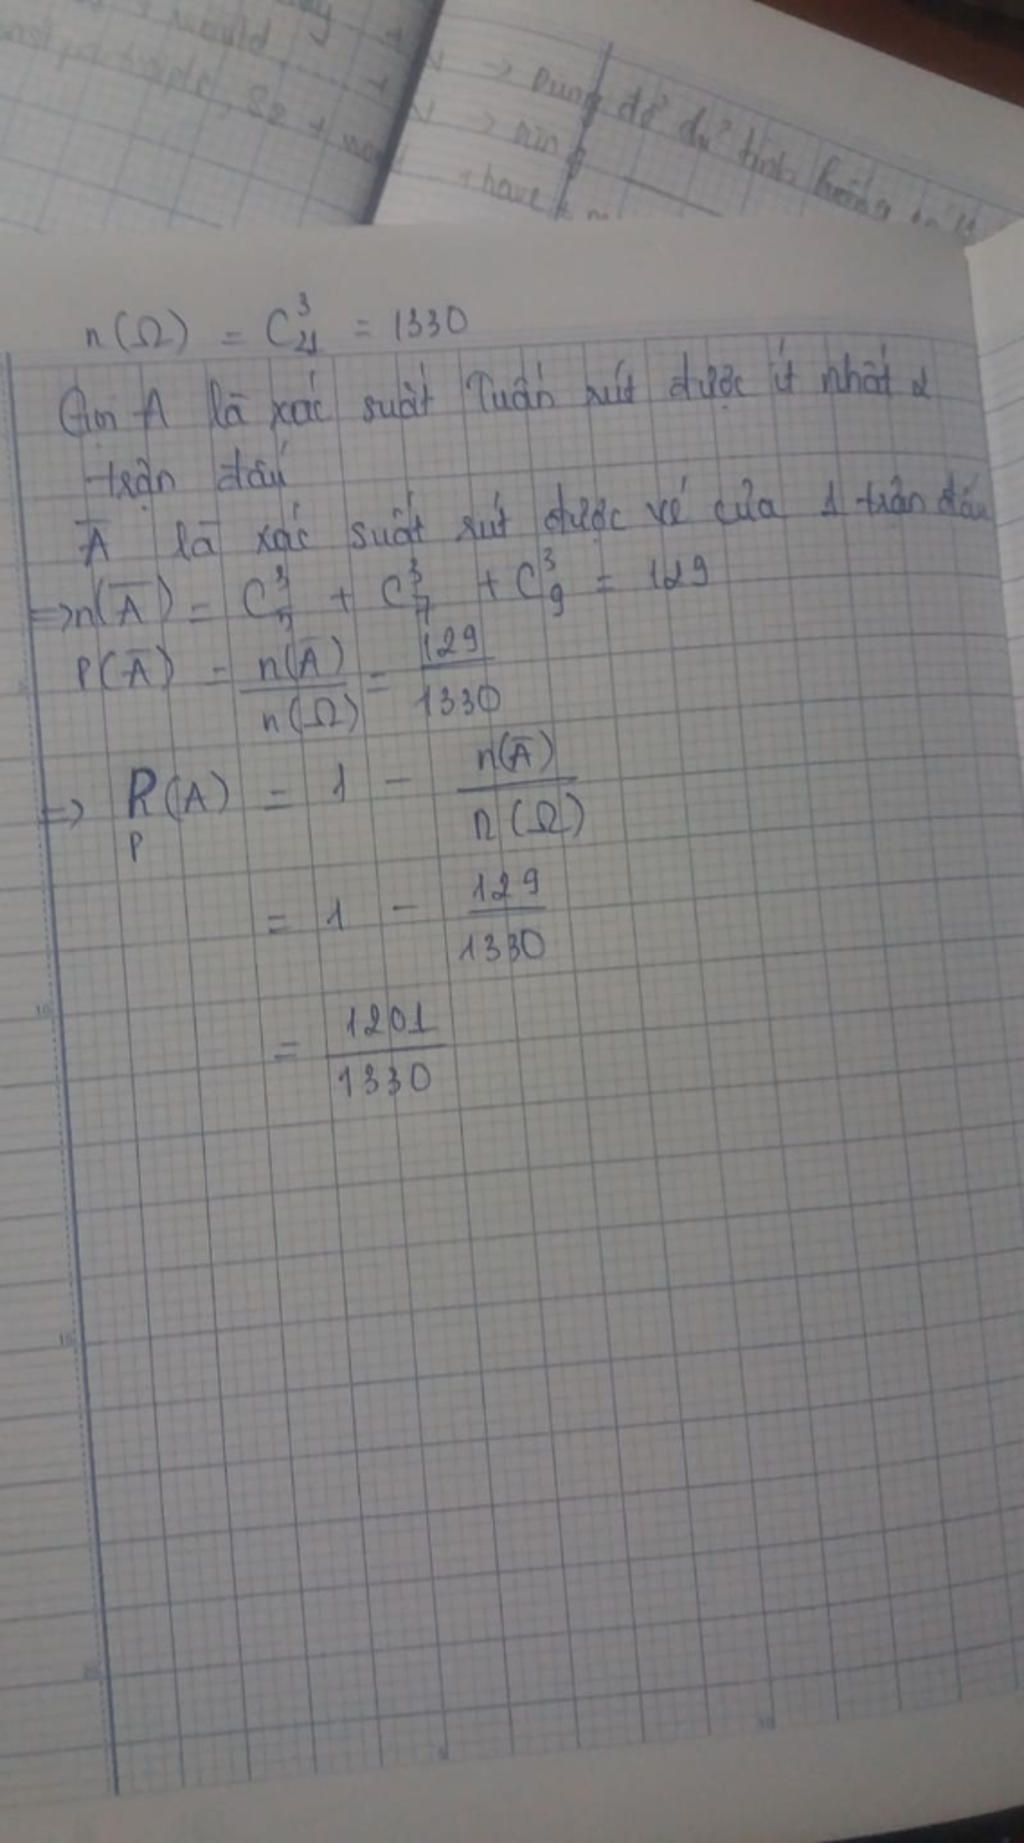 would
S2 +
→ Dùng để dự tính
→
+ have +
n(Ω) = C³₂₁ = 1330
Gọi A là xác suất Tuấn rút được ít nhất 2
trận đấu
A̅ là xác suất rút được vé của 1 trận đấu
=> n(A̅) = C³₅ + C³₇ + C³₉ = 129
P(A̅) = n(A̅)/n(Ω) = 129/1330
=> P(A) = 1 - n(A̅)/n(Ω)
P
= 1 - 129/1330
= 1201/1330